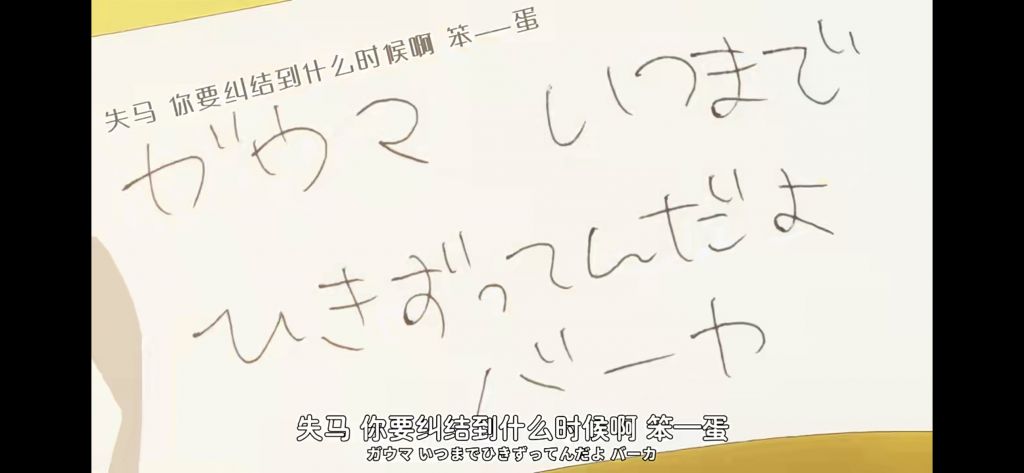 失马 你要纠结到什么时候啊 笨—蛋
ガウマ いつまで
ひきずってんだよ
バーカ
失马 你要纠结到什么时候啊 笨—蛋
ガウマ いつまでひきずってんだよ バーカ